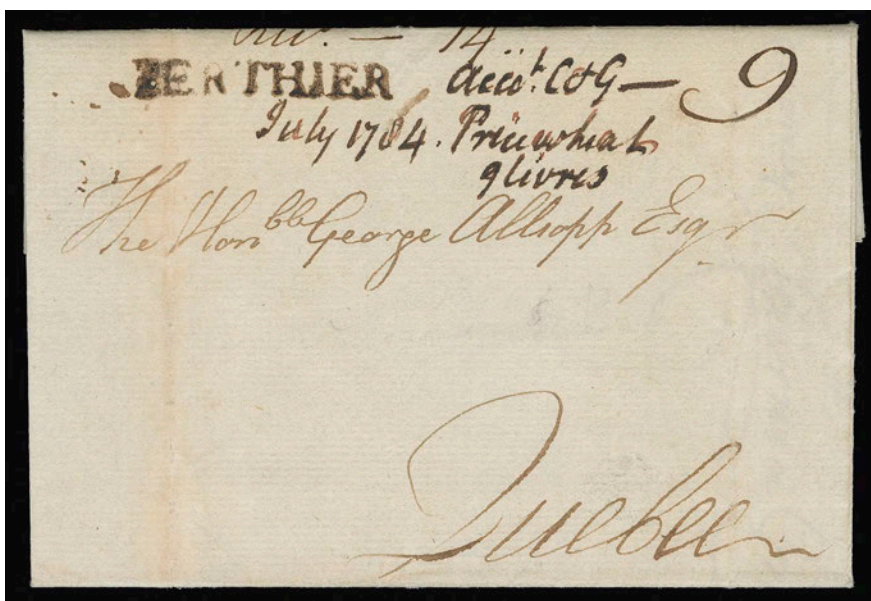 14
BERTHIER acco.t C&G — 9
July 1784. Price wheat
9 livres
The Hon.ble George Allsopp Esqr
Quebec